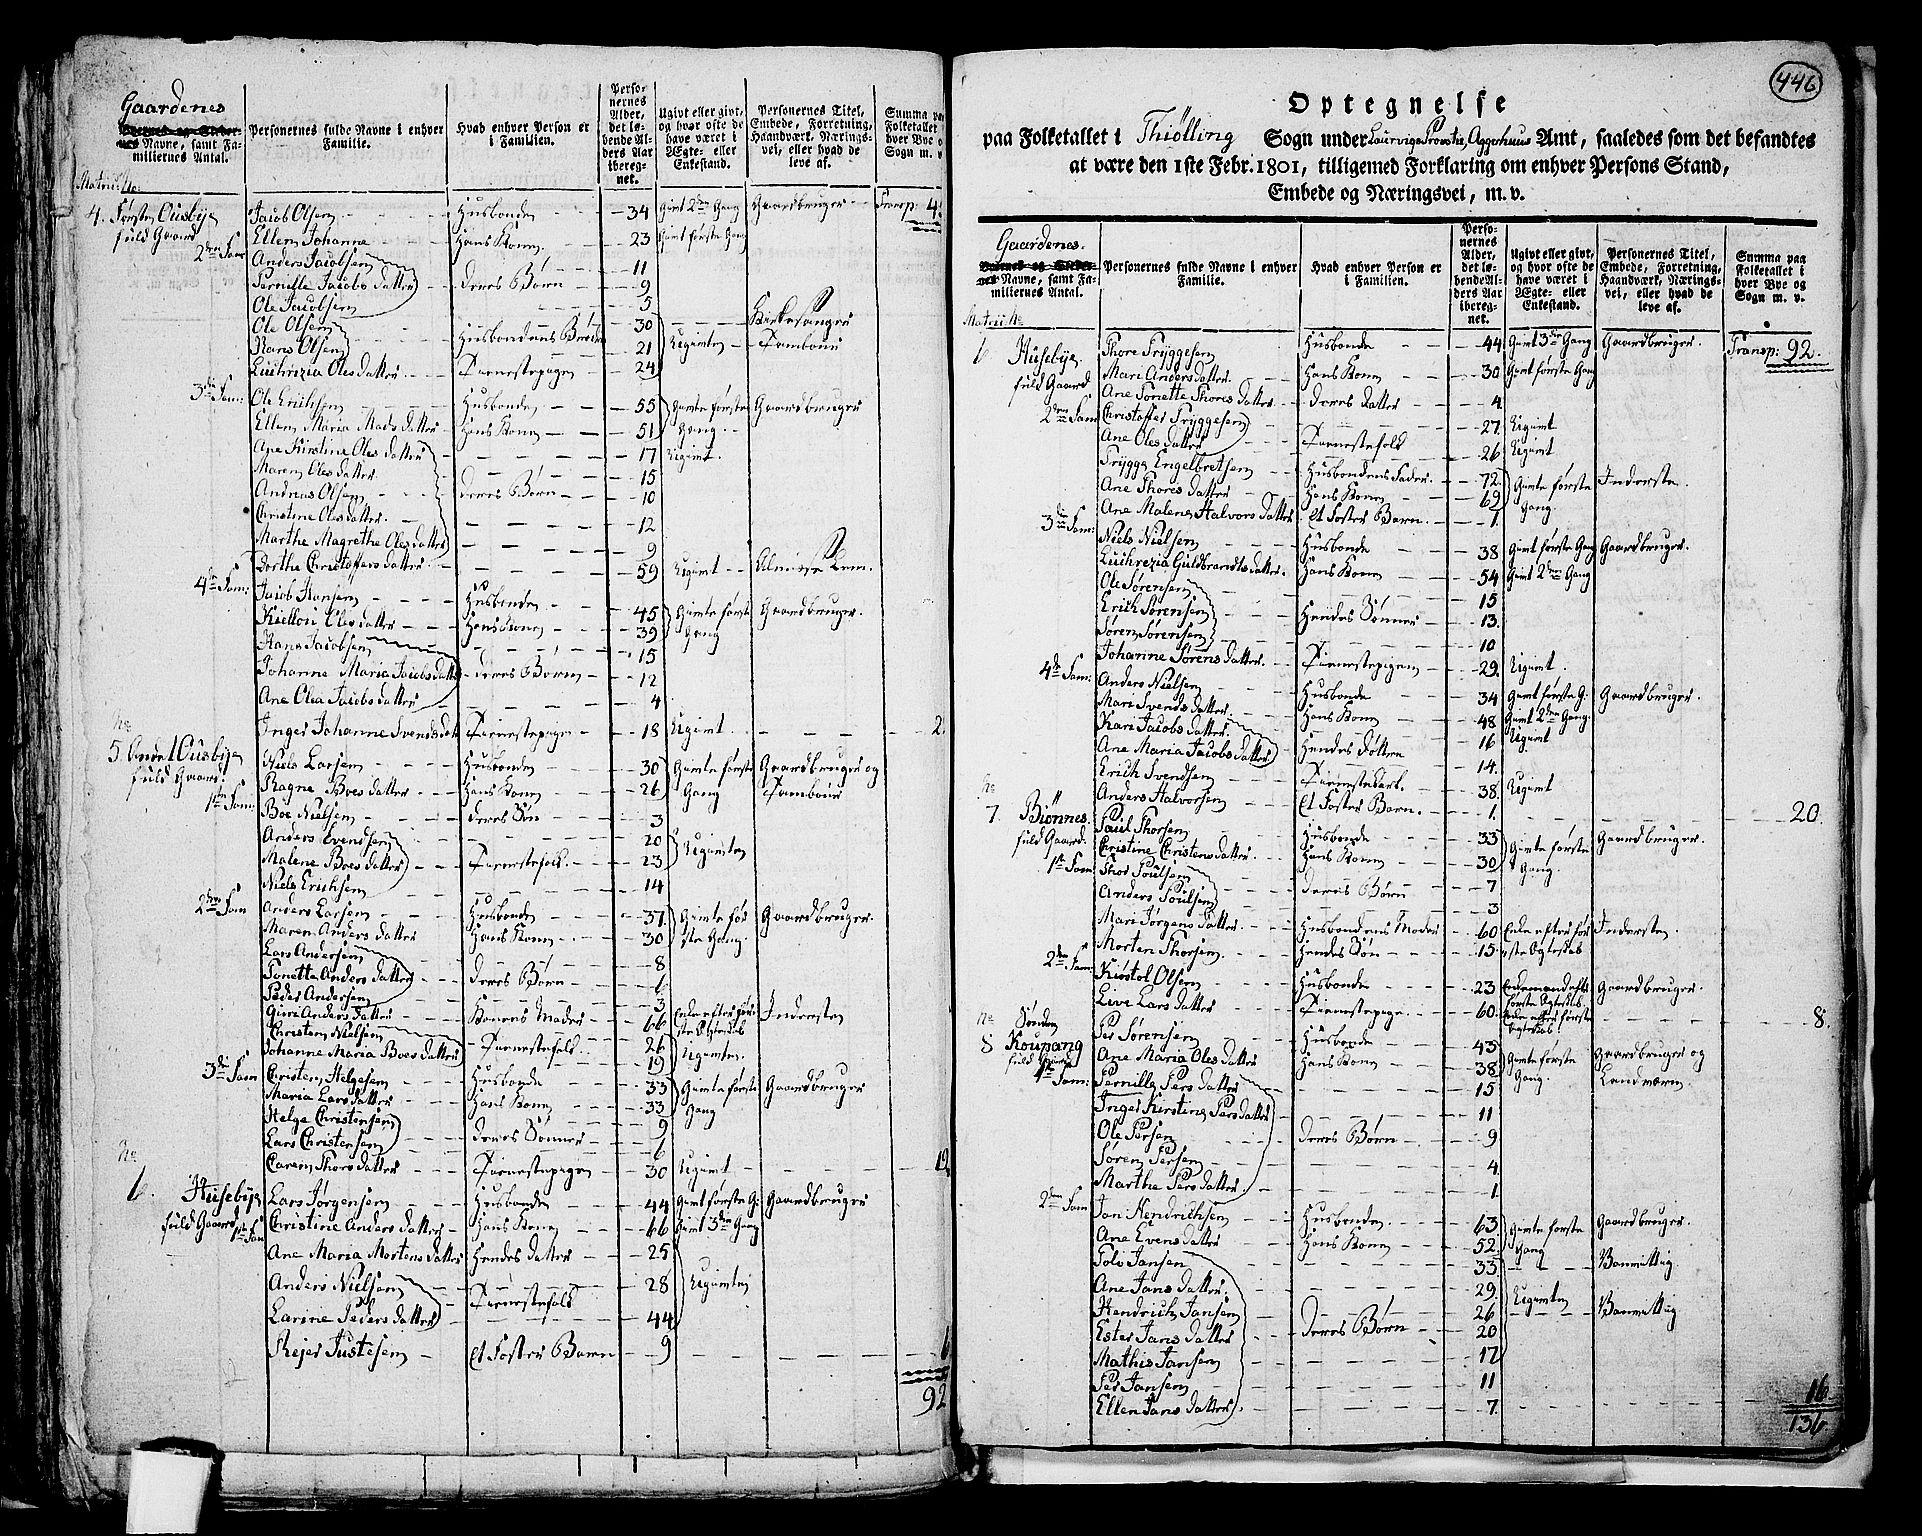 Gaardenes
Byernes og Stædernes Navne, samt Familiernes Antal.
Personernes fulde Navne i enhver Familie.
Hvad enhver Person er i Familien.
Personernes Alder, det løbende Alders Aar iberegnet.
Ugivt eller givt, og hvor ofte de have været i Ægte- eller Enkestand.
Personernes Titel, Embede, Forretning, Haandværk, Næringsvei, eller hvad de leve af.
Summa paa Folketallet hver Bye o Sogn m. v.
Matric: No:
4. Første Ousbÿe Jacob Olsen Husbonde 34 Givt 2den Gang Gaardbruger Transp: 4
fuld Gaard Ellen Johanne Hans Kone 23 Givt første Gang
2den Fam Anders Jacobsen 11
Pernille Jacobsdatter Deres Børn 9
Ole Jacobsen 5
Ole Olsen Husbondens Brødre 30 Kirkesanger
Hans Olsen 21 Ugivte Tambour
Luchrezia Olesdatter Tienestepige 24
3de Fam: Ole Erichsen Husbonde 55 Givte første Gaardbruger
Ellen Maria Madsdatter Hans Kone 51 Gang
Ane Kirstine Olesdatter 17 Ugivt
Maren Olesdatter 15
Andreas Olsen Deres Børn 10
Christine Olesdatter 12
Marthe Magrethe Olesdatter 9
Dorthe Christoffersdatter 59 Ugivt Almisse Lem
4de Fam: Jacob Hansen Husbonde 45 Givte første Gaardbruger
Olesdatter Hans Kone 39 Gang
Hans Jacobsen 15
Johanne Maria Jacobsdatter Deres Børn 12
Ane Olea Jacobsdatter 4
Inger Johanne Svendsdat Tienestepige 18 Ugivt 2
No 5 Andet Ousbÿe Niels Larsen Husbonde 30 Givte første Gaardbruger og
fuld Gaard Ragne Boesdatter Hans Kone 26 Gang Tambour
1ste Fam: Boe Nielsen Deres Søn 3
Anders Evendsen 20
Malene Boesdatter Tienestefolk 23 Ugivte
Niels Erichsen 14
2den Fam Anders Larsen Husbonde 37 Givte før Gaardbruger
Maren Andersdatter Hans Kone 30 ste Gang
Lars Andersen 8
Tonette Andersdatter Deres Børn 6
Peder Andersen 3
Guri Andersdatter Konens Moder 66 Enke efter før Inderste
Christen Nielsen 26 ste Ægteskab
Johanne Maria Boesdatter Tienestefolk 19 Ugivte
3de Fam Christen Helgesen Husbonde 33 Givte første Gaardbruger
Maria Larsdatter Hans Kone 33 Gang
Helge Christensen 9
Lars Christensen Deres Sønner 6
Caren Thorsdatter Tienestepige 30 Ugivt 19
No 6. Husebÿe Lars Jørgensen Husbonde 44 Givt første G: Gaardbruger
fuld Gaard 1ste Fam Christine Andersdatter Hans Kone 66 Givt 3den Gang
Ane Maria Mortensdatter Hendes Datter 25
Anders Nielsen Tienestefolk 28 Ugivte
Larine Pedersdatter 44
Rejer Justesen Et Foster Barn 9 6
92
446
Optegnelse
paa Folketallet i Thiølling Sogn under Laurvigs Provstie, Aggerhuus Amt, saaledes som det befandtes
at være den 1ste Febr. 1801, tilligemed Forklaring om enhver Persons Stand,
Embede og Næringsvei, m. v.
Gaardenes
Byernes og Stædernes Navne, samt Familiernes Antal.
Personernes fulde Navne i enhver Familie.
Hvad enhver Person er i Familien.
Personernes Alder, det løbende Alders Aar iberegnet.
Ugivt eller givt, og hvor ofte de have været i Ægte- eller Enkestand.
Personernes Titel, Embede, Forretning, Haandværk, Næringsvei, eller hvad de leve af.
Summa paa Folketallet i hver Bye og Sogn m. v.
Matric: No
6 Husebÿe Thore Trÿggesen Husbonde 44 Givt 3die Gang Gaardbruger. Transp: 92.
fuld Gaard Mari Andersdatter Hans Kone 30 Givt første Gang
Ane Tonette Thoresdatter Deres Datter 4
2den Fam Christoffer Trÿggesen 27 Ugivt
Ane Olesdatter Tienestefolk 26 Ugivt
Trÿgge Engelbretsen Husbondens Fader 72 Givte første Inderste.
Ane Thoresdatter Hans Kone 69 Gang.
Ane Malene Halvorsdatter Et Foster Barn 1.
3de Fam: Niels Nielsen Husbonde 38 Givt første Gang Gaardbruger.
Luchrezia Guldbrandsdatter Hans Kone 54 Givt 2den Gang
Ole Sørensen 15
Erich Sørensen Hendes Sønner 13.
Søren Sørensen 10
Johanne Sørensdatter Tienestepige 29. Ugivt.
4de Fam: Anders Nielsen Husbonde 34 Givt første G: Gaardbruger
Mari Svendsdatter Hans Kone 48 Givt 2den Gang.
Kari Jacobsdatter 16 Ugivt
Ane Maria Jacobsdatter Hendes Døttre 14.
Erich Svendsen Tienestekarl. 38. Ugivt
Anders Halvorsen Et Foster Barn. 1. 20.
No 7. Biønnes Paul Thorsen Husbonde 33 Givte første Gaardbruger.
fuld Gaard Christine Christensdatter Hans Kone 30 Gang.
1ste Fam Thor Poulsen 7
Anders Poulsen Deres Børn 3
Mari Jørgensdatter Husbondens Moder 60 Enke efter før Inderste.
Morten Thorsen Hendes Søn 15 ste Ægteskab
2den Fam: Kiøstol Olsen Husbonde 23 Enkemand efter første Ægteskab. Gaardbruger.
Live Larsdatter Tienestepige 60 Enke efter første Ægteskab 8.
No 8 Søndre Koupang Per Sørensen Husbonde 43 Givte første Gaardbruger og
fuld Gaard Ane Maria Olesdatter Hans Kone 38 Gang. Landværn.
1ste Fam: Pernille Persdatter 15
Inger Kirstine Persdatter 11
Ole Persen Deres Børn 9
Søren Persen 4
Marthe Persdatter 1
2den Fam Jan Hendrichsen Husbonde 63 Givte første Gaardbruger.
Ane Evensdatter Hans Kone 52 Gang
Jansen 33 Vanvittig
Ane Jansdatter 29
Hendrich Jansen Deres Børn 26 Ugivte Vanvittig
Ester Jansdatter 20
Mathis Jansen 17
Per Jansen 11
Ellen Jansdatter 7. 16
136.